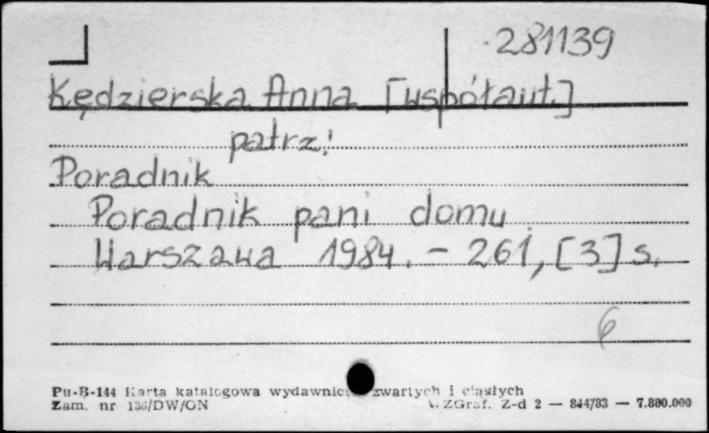 281139
Kędzierska Anna [współaut.]
patrz:
Poradnik
Poradnik pani domu.
Warszawa 1984. - 261, [3] s.
6
Pu-B-144 Karta katalogowa zwartych i ciągłych
Zam. nr 136/DW/ON ZGraf. Z-d 2 — 844/83 — 7.800.000